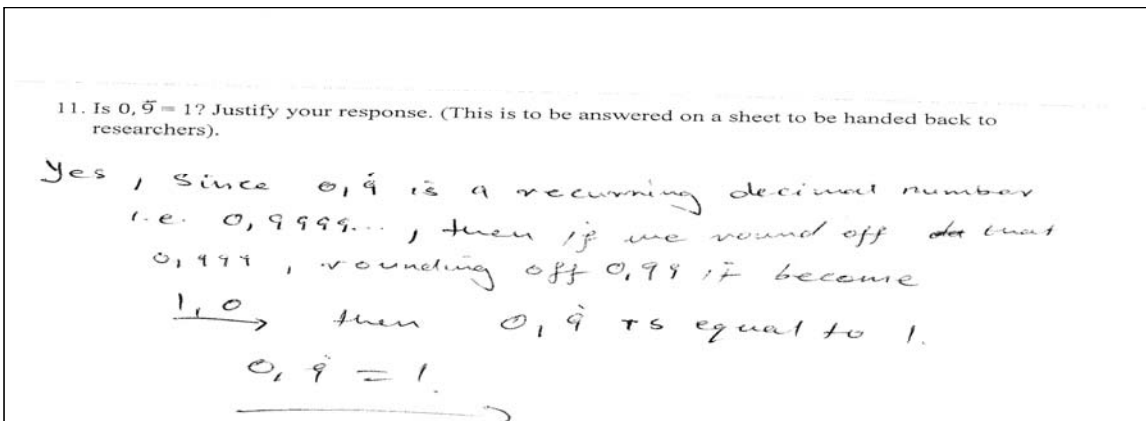 11. Is 0, 9̄ = 1? Justify your response. (This is to be answered on a sheet to be handed back to
researchers).
Yes, since 0,9̇ is a recurring decimal number
i.e. 0,9999..., then if we round off that
0,999, rounding off 0,99 it become
1,0 then 0,9̇ is equal to 1.
0,9̇ = 1.